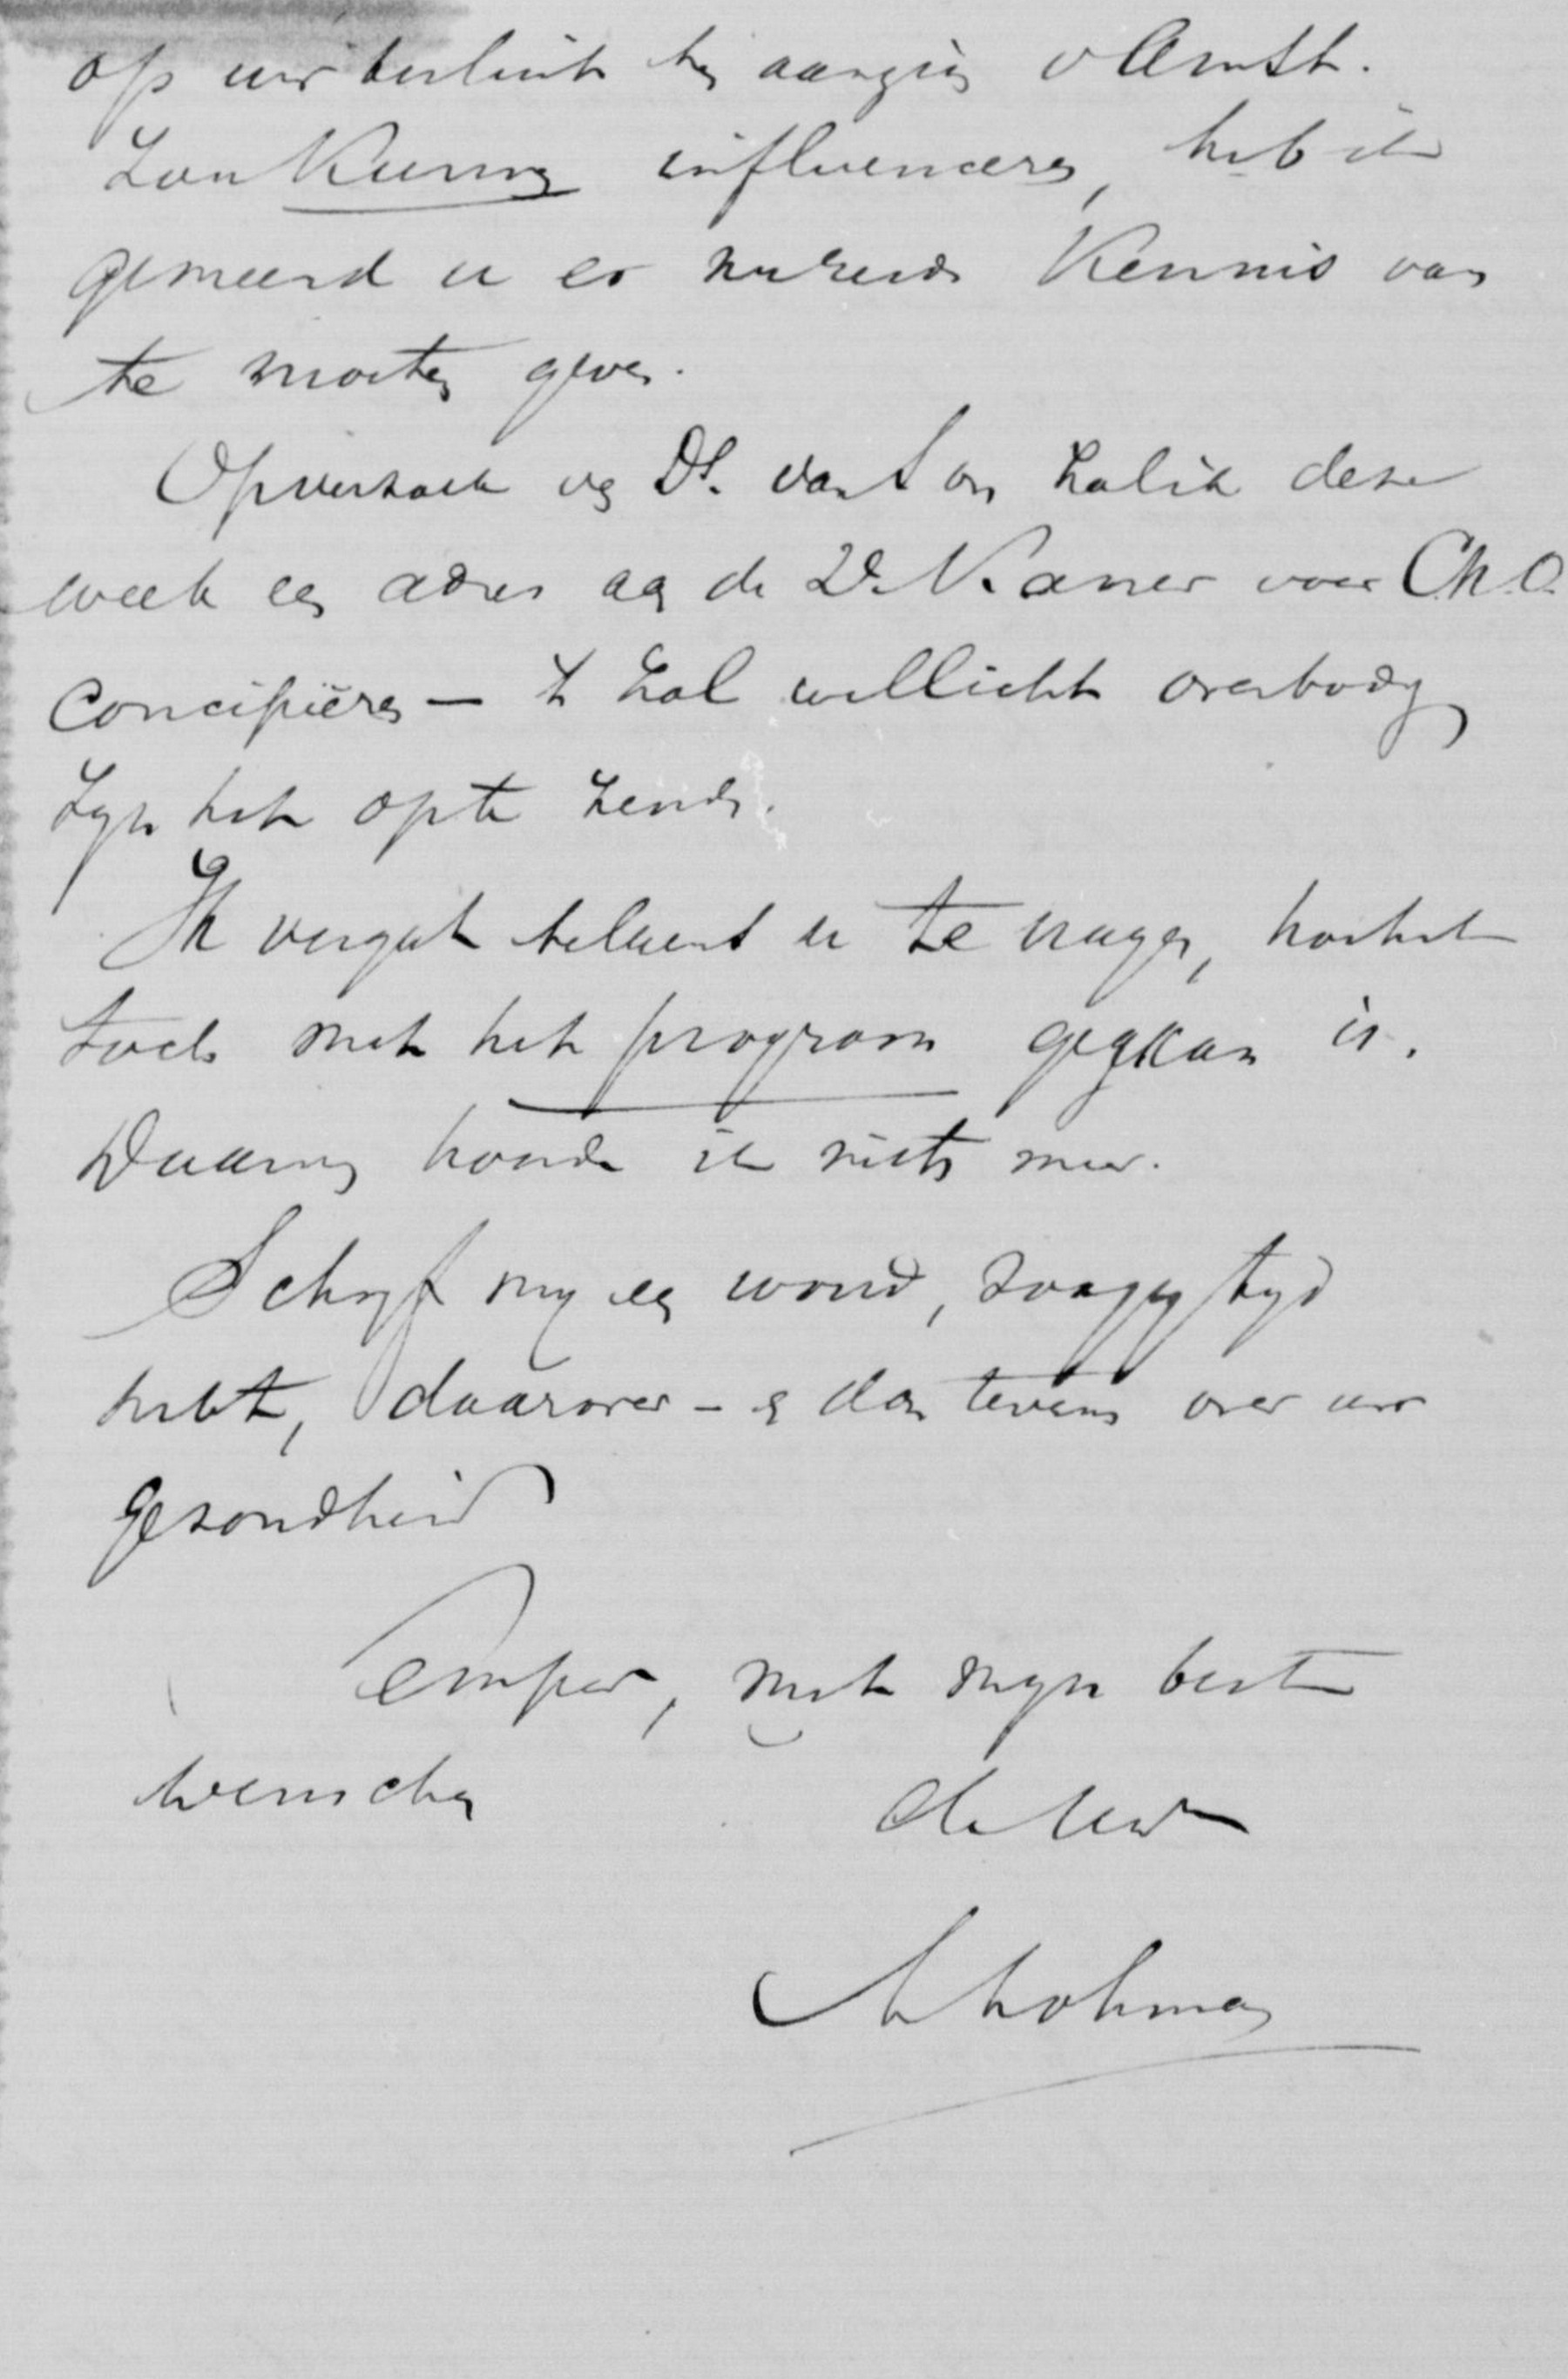 op uw besluit ten aanzien v Amst.
zou kunnen influenceren, heb ik
gemeend u er nu reeds kennis van
te moeten geven.
Op verzoek van Ds. van Son zal ik deze
week een adres aan de 2e Kamer voor Ch. O.
concipiëren – 't zal wellicht overbodig
zyn het op te zenden.
Ik vergat telkens u te vragen, hoe het
toch met het program gegaan is.
Daarvan hoorde ik niets meer.
Schryf my een woord, zoo gy tyd
hebt, daarover – en dan tevens over uw
gezondheid
Semper, met myn beste
wenschen
de Uwe
Lohman